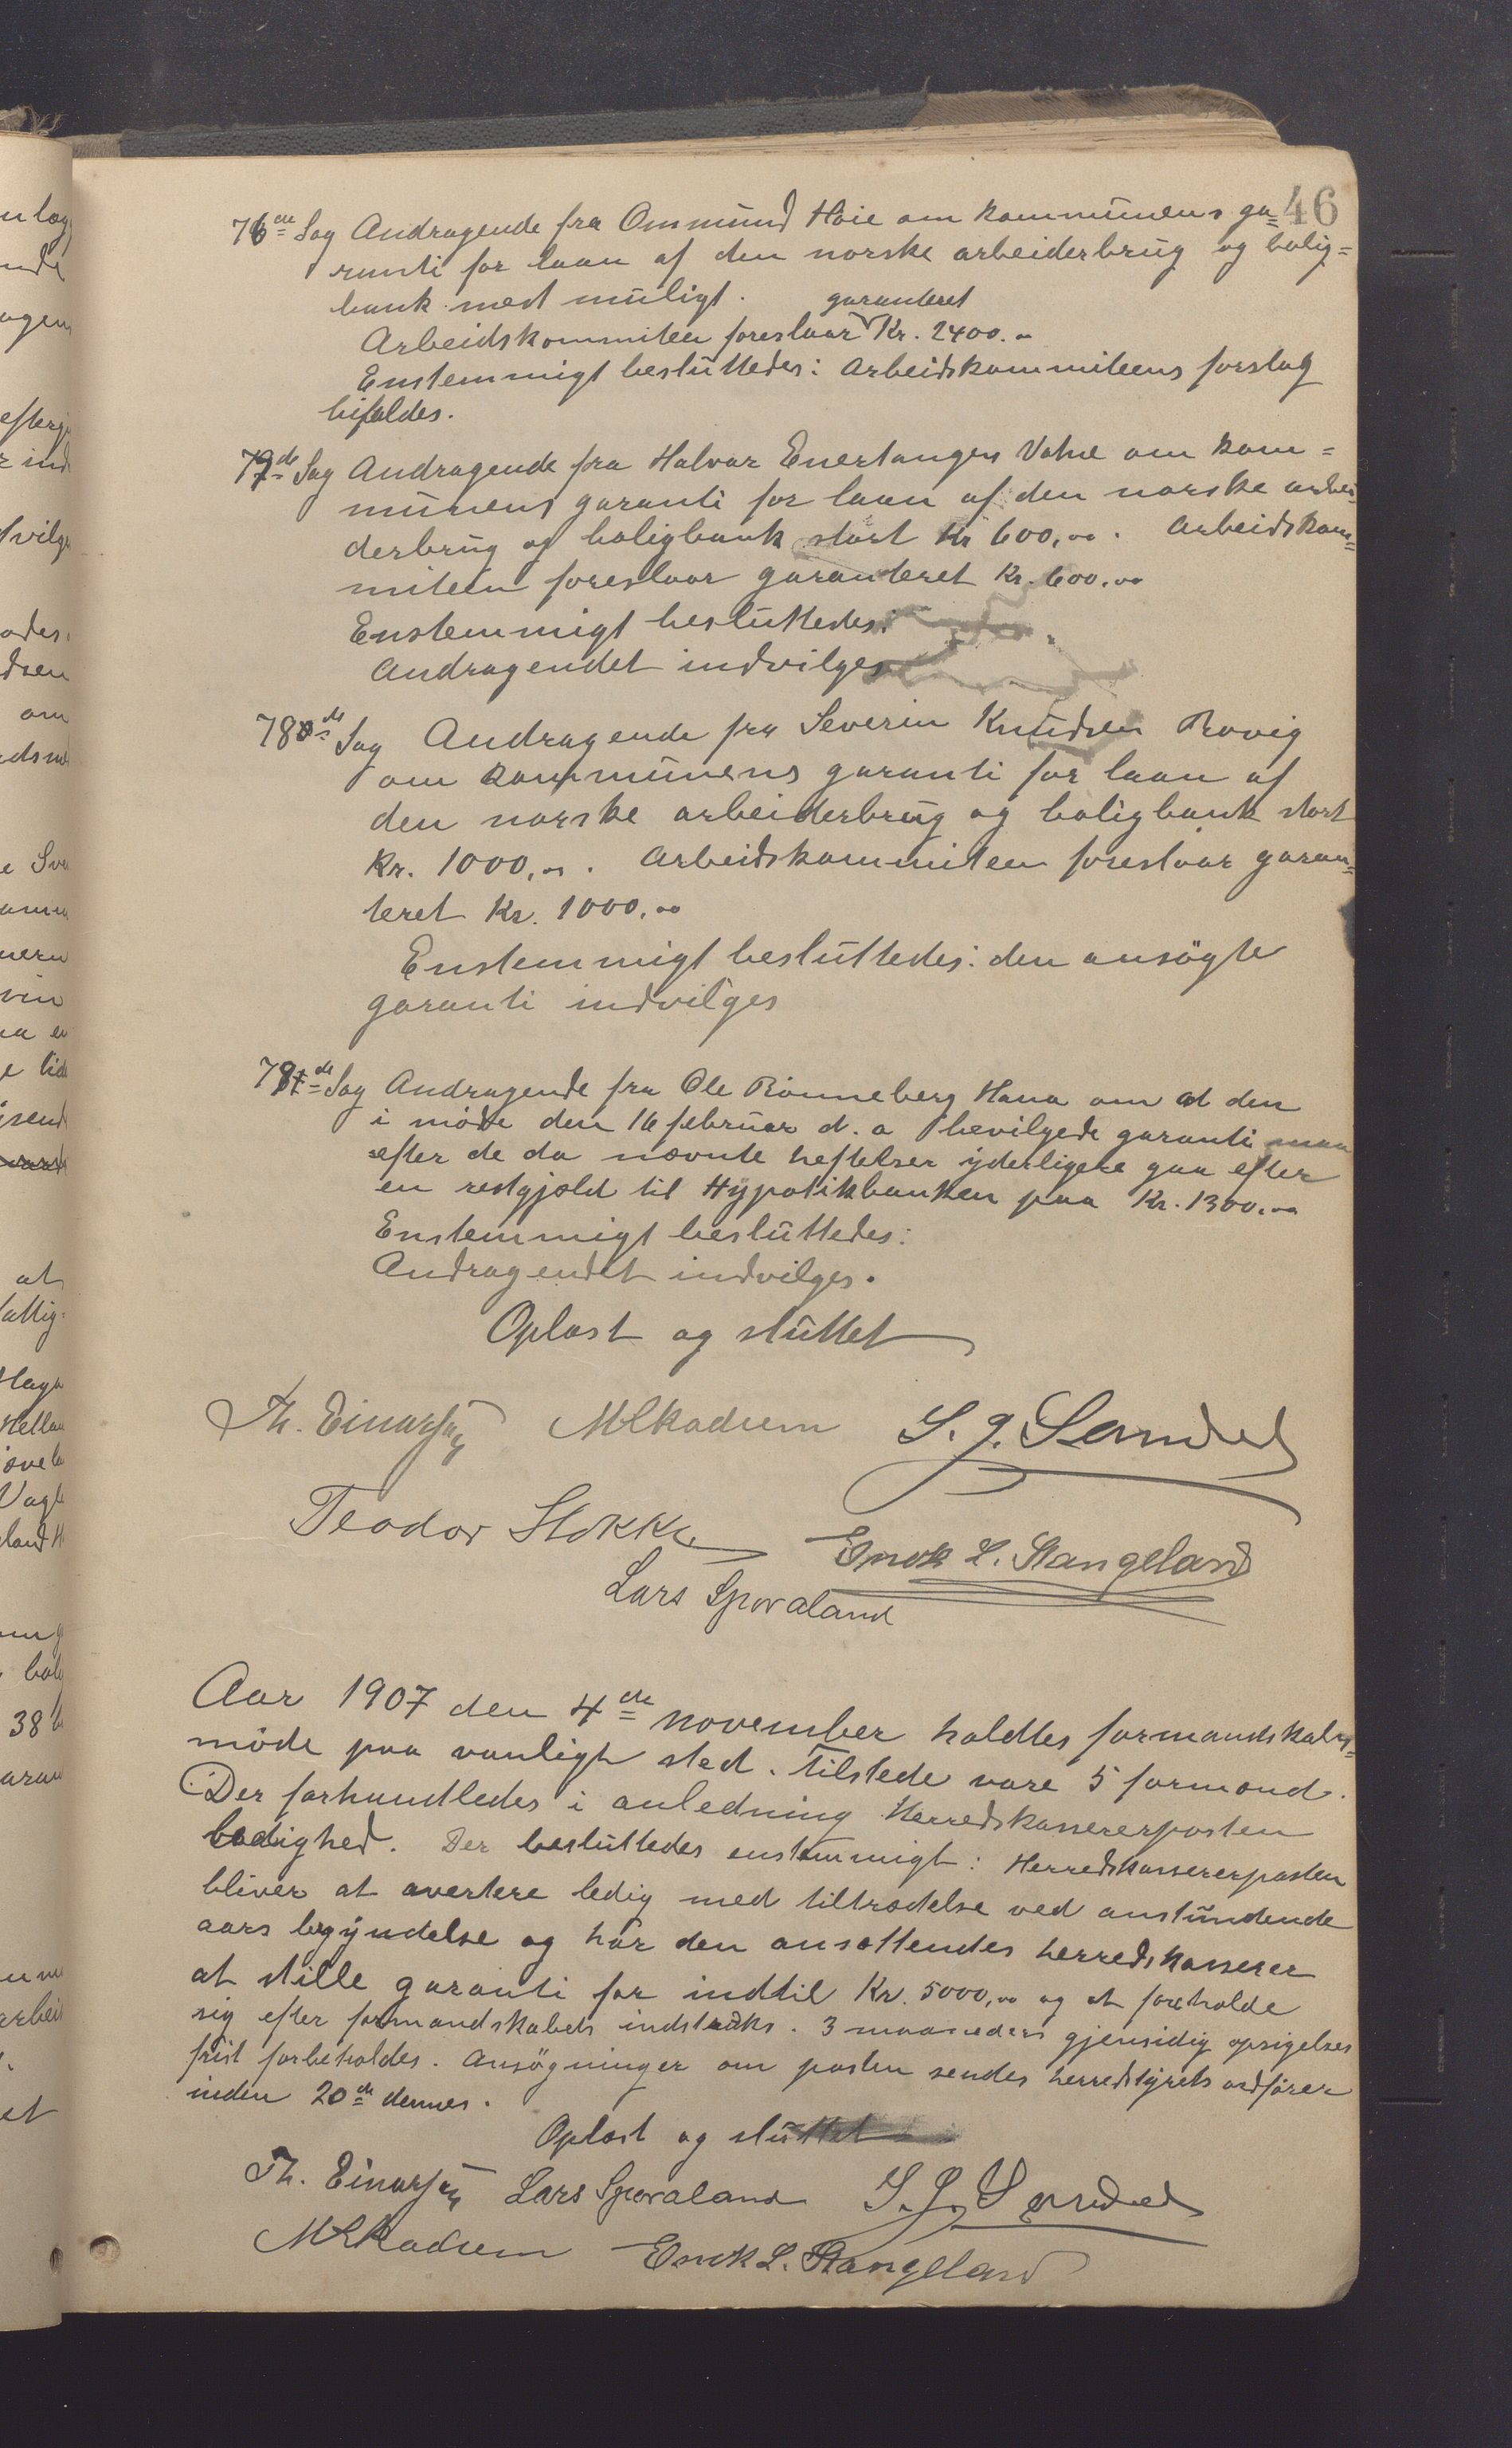 46
76de Sag Andragende fra Ommund Höie om kommunens ga=
ranti for laan af den norske arbeiderbrug og bolig=
bank mest muligt. garanteret
Arbeidskommiteen foreslaar Kr. 2400.00
Enstemmigt besluttedes: Arbeidskommiteens forslag
bifaldes.
77de Sag Andragende fra Halvar Enertangen Vatne om kom=
munens garanti for laan af den norske arbei=
derbrug og boligbank stort Kr 600,00. Arbeidskom=
miteen foreslaar garanteret Kr. 600.00
Enstemmigt besluttedes:
Andragendet indvilges
78de Sag Andragende fra Severin Knudsen Rovig
om kommunens garanti for laan af
den norske arbeiderbrug og boligbank stort
Kr. 1000,00. Arbeidskommiteen foreslaar garan=
teret Kr. 1000,00
Enstemmigt besluttedes: den ansögte
garanti indvilges
de Sag Andragende fra Ole Rönneberg Hana om at den
i möde den 16 februar d. a bevilgede garanti maa
efter de da nævnte heftelser yderligere gaa efter
en restgjæld til Hypotikbanken paa Kr. 1300.00
Enstemmigt besluttedes:
Andragendet indvilges.
Oplæst og sluttet
Th. Einarsen M Skadsem S. J. Sandved
Teodor Stokke Enok L. Stangeland
Lars Sporaland
Aar 1907 den 4de november holdtes formandskabs=
möde paa vanligt sted. Tilstede vare 5 formænd.
Der forhandledes i anledning Herredskassererposten
ledighed. Der besluttedes enstemmigt: Herredskassererposten
bliver at avertere ledig med tiltrædelse ved anstundende
aars begyndelse og har den ansættendes herredskasserer
at stille garanti for indtil Kr. 5000,00 og at forholde
sig efter formandskabets instruks. 3 maaneders gjensidig opsigelses
frist forbeholdes. Ansögninger om posten sendes herredstyrets ordförer
inden 20de dennes.
Oplæst og sluttet
Th. Einarsen Lars Sporaland S. J. Sandved
M Skadsem Enok L. Stangeland